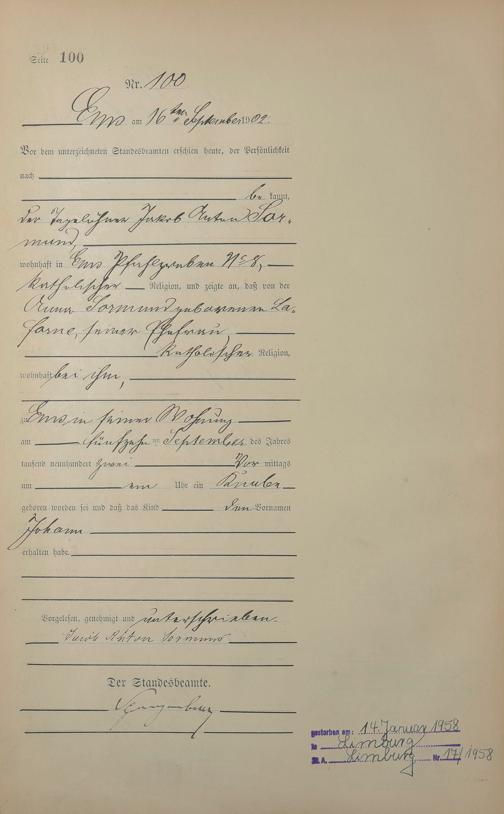 Seite 100
Nr. 100
Ems am 16ten September 1902.
Vor dem unterzeichneten Standesbeamten erschien heute, der Persönlichkeit
nach
be kannt,
der Tagelöhner Jakob Anton Sor-
mund,
wohnhaft in Ems Pfahlgraben No 8,
katholischer Religion, und zeigte an, daß von der
Anna Sormund geborenen La-
forne, seiner Ehefrau
katholischer Religion,
wohnhaft bei ihm,
zu Ems in seiner Wohnung
am fünfzehn ten September des Jahres
tausend neunhundert zwei Vor mittags
um ein Uhr ein Knabe
geboren worden sei und daß das Kind den Vornamen
Johann
erhalten habe.
Vorgelesen, genehmigt und unterschrieben.
Jacob Anton Sormund
Der Standesbeamte.
gestorben am: 14. Januar 1958
in Limburg
St. A. Limburg Nr. 17/1958